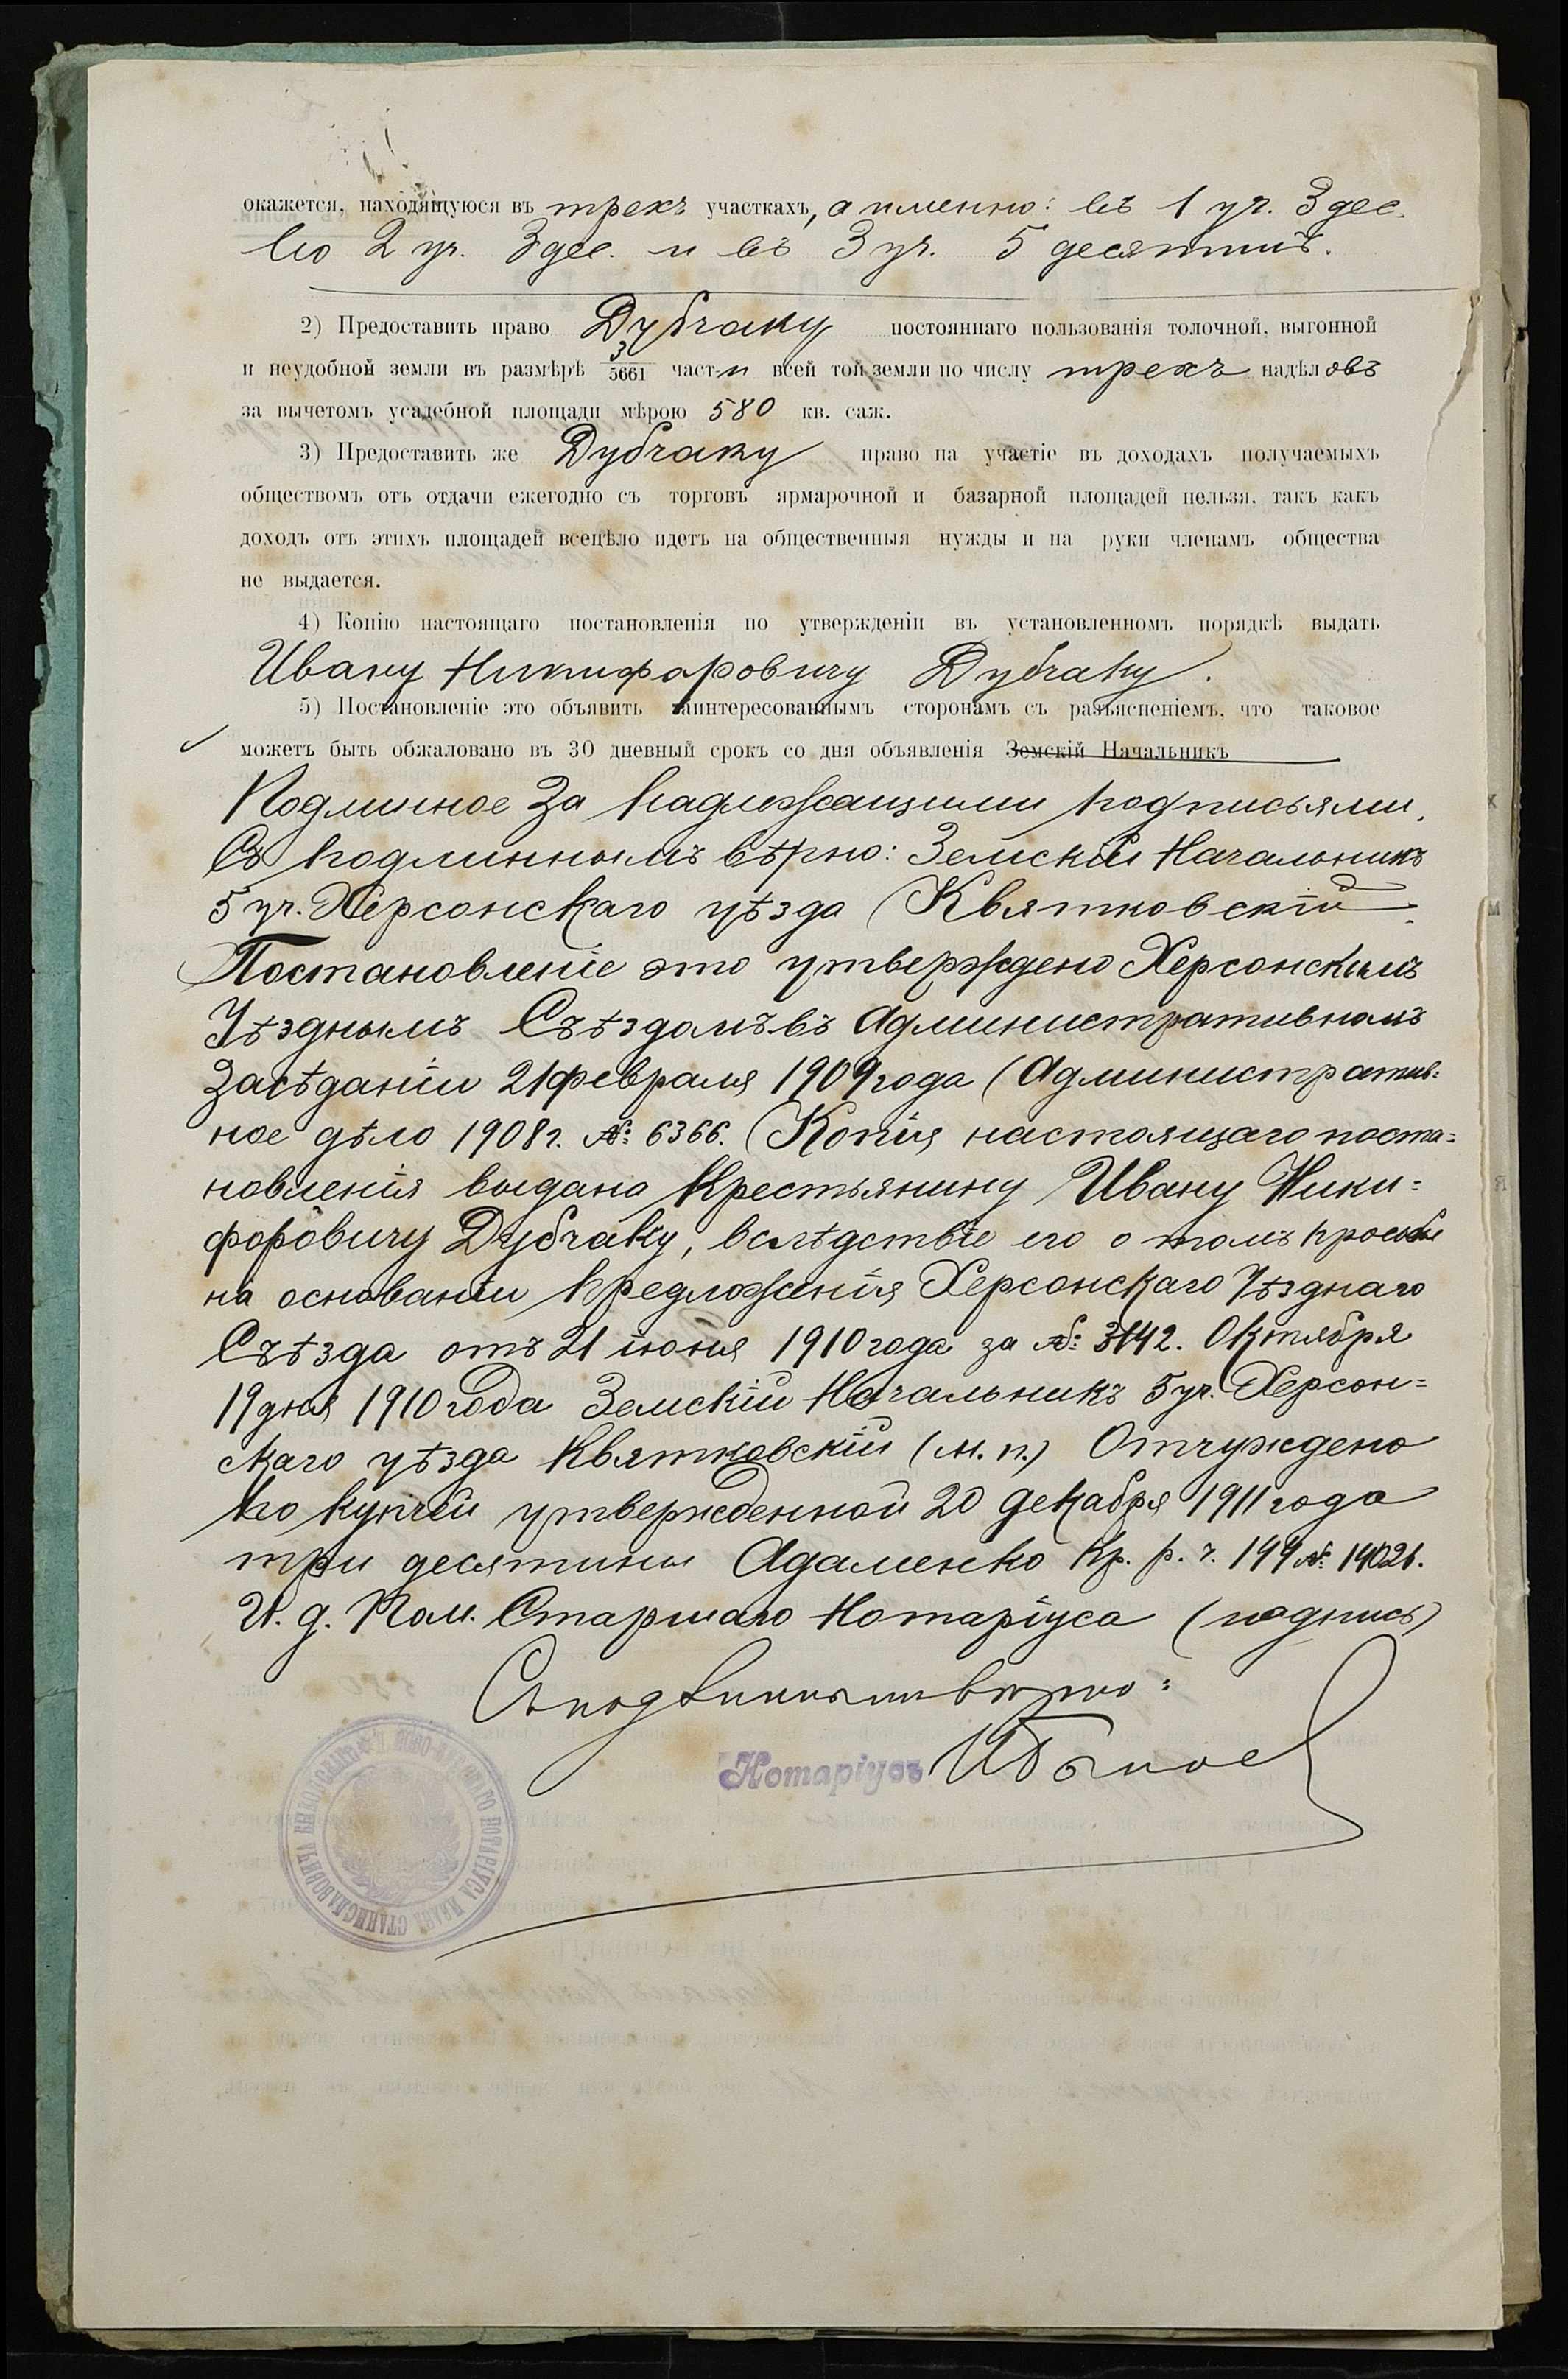 окажется, находящуюся въ трехъ участкахъ, а именно: въ 1 уч. 3 дес.
во 2 уч. 3 дес. и въ 3 уч. 5 десятинъ.
2) Предоставить право Дубчаку постояннаго пользованія толочной, выгонной
и неудобной земли въ размѣрѣ 3/5661 части всей той земли по числу трехъ надѣловъ
за вычетомъ усадебной площади мѣрою 580 кв. саж.
3) Предоставить же Дубчаку право на участіе въ доходахъ получаемыхъ
обществомъ отъ отдачи ежегодно съ торговъ ярмарочной и базарной площадей нельзя, такъ какъ
доходъ отъ этихъ площадей всецѣло идетъ на общественныя нужды и на руки членамъ общества
не выдается.
4) Копію настоящаго постановленія по утвержденіи въ установленномъ порядкѣ выдать
Ивану Никифоровичу Дубчаку.
5) Постановленіе это объявить заинтересованнымъ сторонамъ съ разъясненіемъ, что таковое
можетъ быть обжаловано въ 30 дневный срокъ со дня объявленія Земскій Начальникъ
Подлинное за надлежащими подписями.
Съ подлиннымъ вѣрно: Земскій Начальникъ
5 уч. Херсонскаго уѣзда Квятковскій.
Постановленіе это утверждено Херсонскимъ
Уѣзднымъ Съѣздомъ въ Административномъ
Засѣданіи 21 февраля 1909 года (Административ=
ное дѣло 1908 г. №: 6366. Копія настоящаго поста=
новленія выдана Крестьянину Ивану Ники=
форовичу Дубчаку, вслѣдствіе его о томъ просьбы
на основаніи предложенія Херсонскаго Уѣзднаго
Съѣзда отъ 21 іюня 1910 года за №: 3142. Октября
19 дня 1910 года Земскій Начальникъ 5 уч. Херсон=
скаго уѣзда Квятковскій (м. п.) Отчуждено
по купчей утвержденной 20 декабря 1911 года
три десятины Адаменко Кр. р. ч. 199 №: 14021.
И. д. Пом. Старшаго Нотаріуса (подпись)
Съ подлиннымъ вѣрно:
Нотаріусъ
НОТАРІУСА ИВАНА СТАНИСЛАВОВИЧА